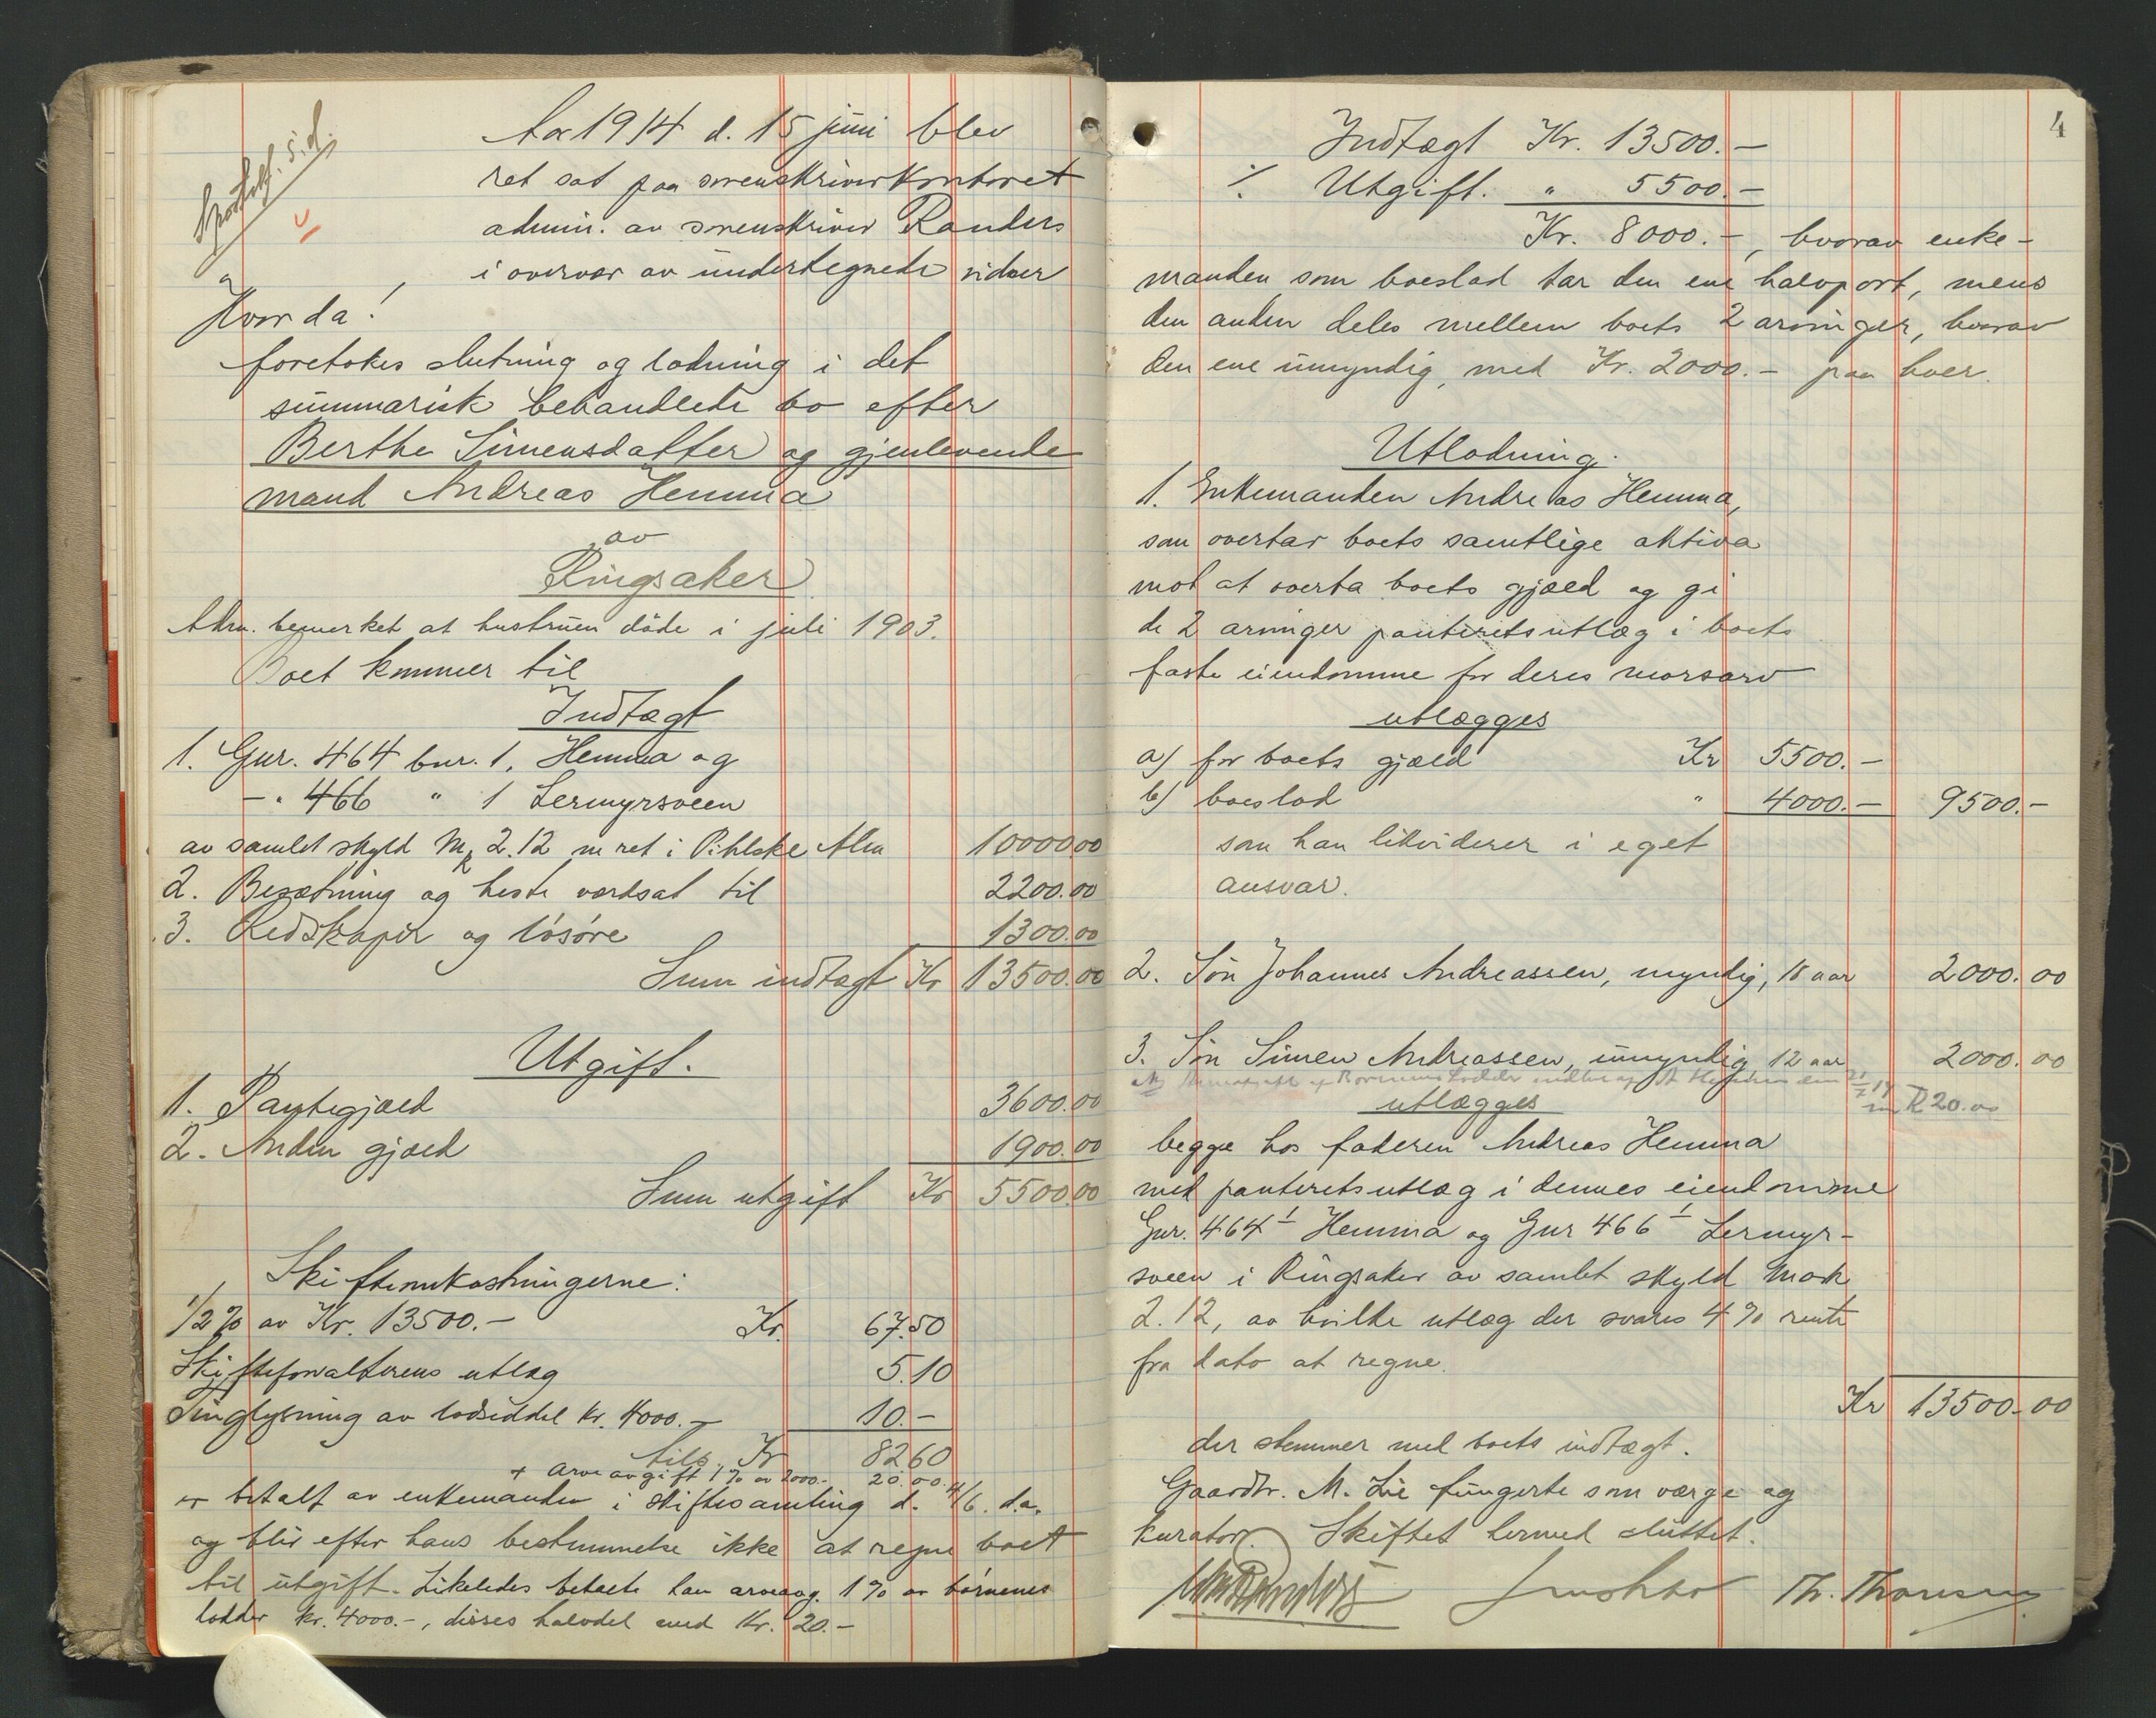 Aar 1914 d. 15 juni blev
ret sat paa sorenskriverkontoret
admin. av sorenskriver Randers
i overvær av undertegnede vidner
Hvorda!
foretokes slutning og lodning i det
summarisk behandlede bo efter
Berthe Simensdatter og gjenlevende
mand Andreas Hemma
av
Ringsaker
Adm. bemerket at hustruen döde i juli 1903.
Boet kommer til
Indtægt
1. Gnr. 464 bnr. 1, Hemma og
-"- 466 " 1 Lermyrsveen
av samlet skyld Mk 2.12 m ret i Pihlske Alm 10000.00
2. Besætning og heste værdsat til 2200.00
3. Redskaper og lösöre 1300.00
Sum indtægt Kr 13500.00
Utgift.
1. Pantegjæld 3600.00
2. Anden gjæld 1900.00
Sum utgift Kr 5500.00
Skifteomkostningerne:
1/2 % av Kr. 13500.- Kr. 67.50
Skifteforvalterens utlæg 5.10
Tinglysning av lodseddel kr. 4000.- 10.-
tils. Kr 82.60
+ arveavgift 1 % av 2000.- 20.00
er betalt av enkemanden i skiftesamling d. 4/6. d.a.
og blir efter hans bestemmelse ikke at regne boet
til utgift. Likeledes betalte han arveavg. 1 % av börnenes
lodder kr. 4000.-, disses halvdel med kr. 20.-
4
Indtægt Kr. 13500.-
÷ Utgift. " 5500.-
Kr. 8000.-, hvorav enke-
manden som boeslod tar den ene halvpart, mens
den anden deles mellem boets 2 arvinger, hvorav
den ene umyndig, med Kr. 2000.- paa hver.
Utlodning.
1. Enkemanden Andreas Hemma,
som overtar boets samtlige aktiva
mot at overta boets gjæld og gi
de 2 arvinger panteretsutlæg i boets
faste eiendomme for deres morsarv
utlægges
a) for boets gjæld Kr 5500.-
b) boeslod " 4000.- 9500.-
som han likviderer i eget
ansvar.
2. Sön Johannes Andreassen, myndig, 18 aar 2000.00
3. Sön Simen Andreassen, umyndig 12 aar 2000.00
20.00
utlægges
begge hos faderen Andreas Hemma
med panteretsutlæg i dennes eiendomme
Gnr. 464 1 Hemma og Gnr 466 1 Lermyr-
sveen i Ringsaker av samlet skyld Mark
2.12, av hvilke utlæg der svares 4 % rente
fra dato at regne.
Kr 13500.00
der stemmer med boets indtægt.
Gaardbr. M. Lie fungerte som værge og
kurator. Skiftet hermed sluttet.
Randers Th. Thoresen